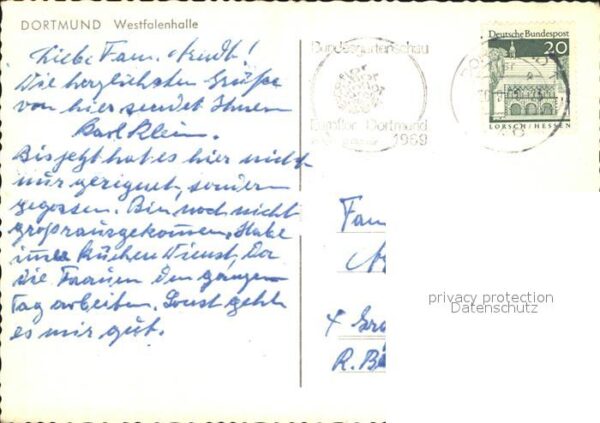 DORTMUND Westfalenhalle
Liebe Fam. Arndt!
Die herzlichsten Grüße
von hier sendet Ihnen
Karl Klein.
Bis jetzt hat es hier nicht
nur geregnet, sondern
gegossen. Bin noch nicht
groß rausgekommen. Habe
immer Küchen Dienst, Da
die Frauen den ganzen
Tag arbeiten. Sonst geht
es mir gut.
Bundesgartenschau
Euroflor Dortmund
1969
Deutsche Bundespost
20
LORSCH/HESSEN
Fam
4
R.
privacy protection
Datenschutz